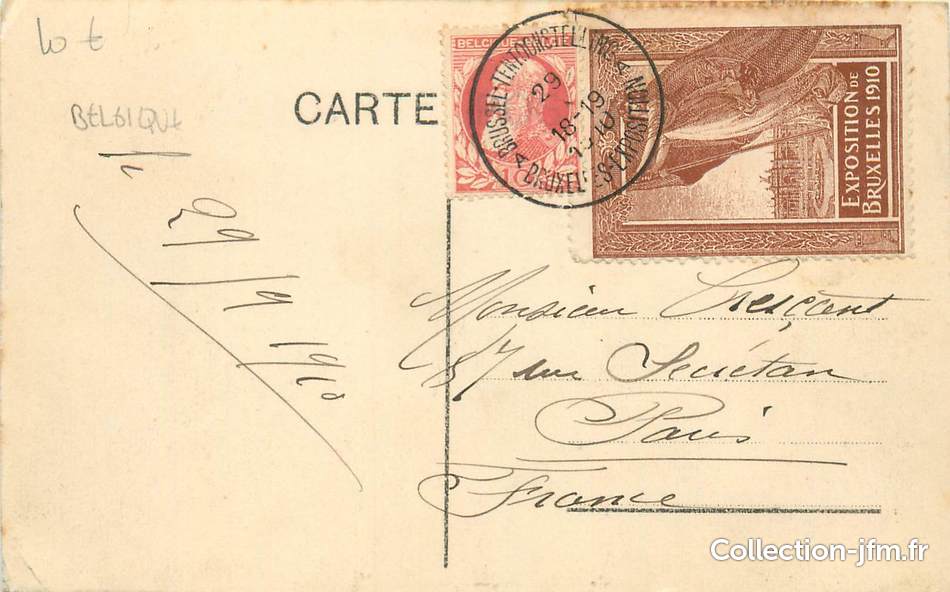 10 €
BELGIQUE
CARTE
BELGIQUE
10
BRUSSEL-TENTOONSTELLING
29
18-19
1910
BRUXELLES-EXPOSITION
EXPOSITION DE
BRUXELLES 1910
le
29/9 1910
Monsieur Cresçent
87 rue Secrétan
Paris
France
Collection-jfm.fr